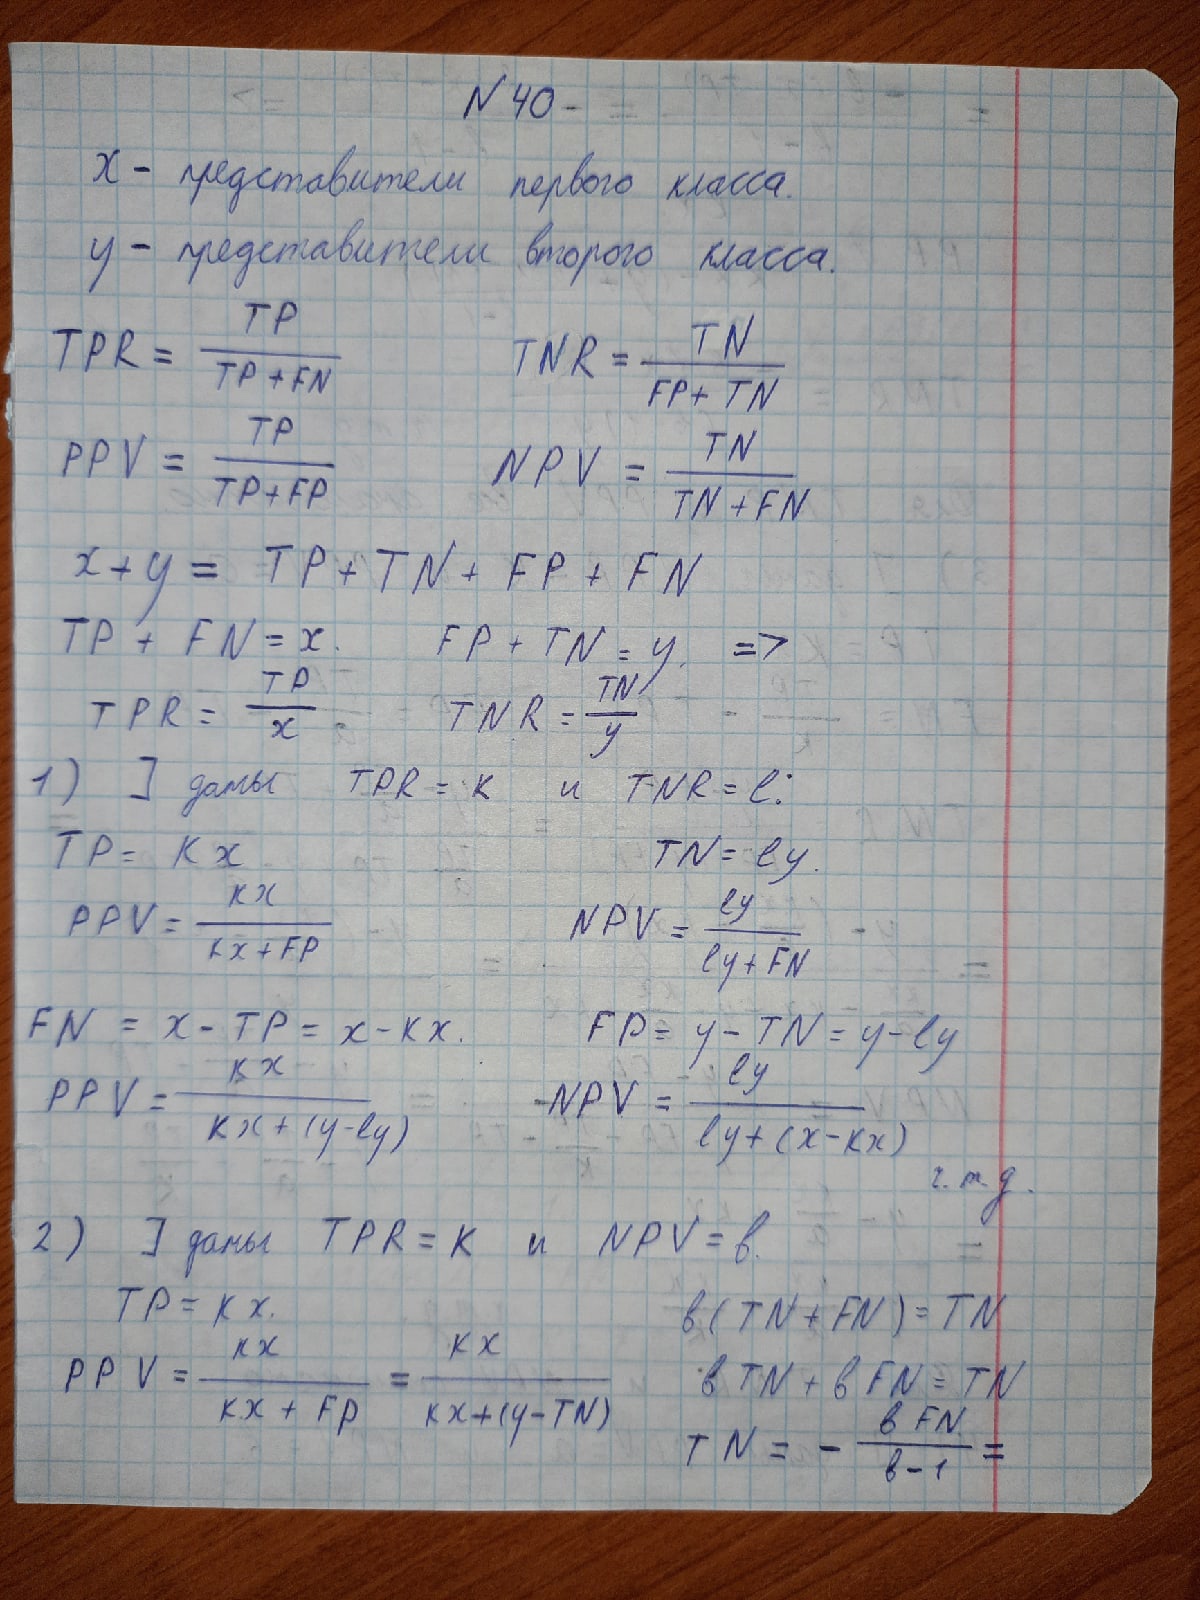 N 40-
x - представители первого класса.
y - представители второго класса.
TPR = TP / (TP + FN)    TNR = TN / (FP + TN)
PPV = TP / (TP + FP)    NPV = TN / (TN + FN)
x + y = TP + TN + FP + FN
TP + FN = x.    FP + TN = y. =>
TPR = TP / x    TNR = TN / y
1) ] даны TPR = k и TNR = l:
TP = kx    TN = ly.
PPV = kx / (kx + FP)    NPV = ly / (ly + FN)
FN = x - TP = x - kx.    FP = y - TN = y - ly
PPV = kx / (kx + (y - ly))    NPV = ly / (ly + (x - kx))
ч.т.д.
2) ] даны TPR = k и NPV = b.
TP = kx.    b(TN + FN) = TN
PPV = kx / (kx + FP) = kx / (kx + (y - TN))    b TN + b FN = TN
TN = - b FN / (b - 1) =